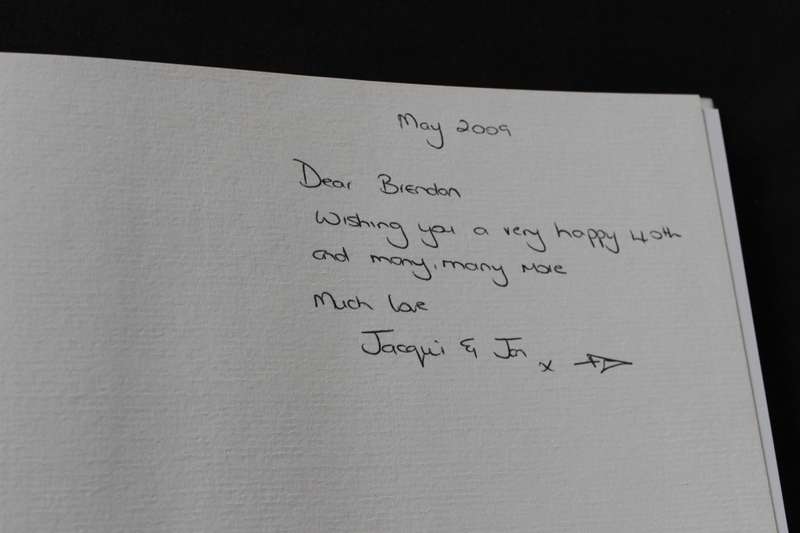 May 2009
Dear Brendon
Wishing you a very happy 40th
and many, many more
Much love
Jacqui & Jon x